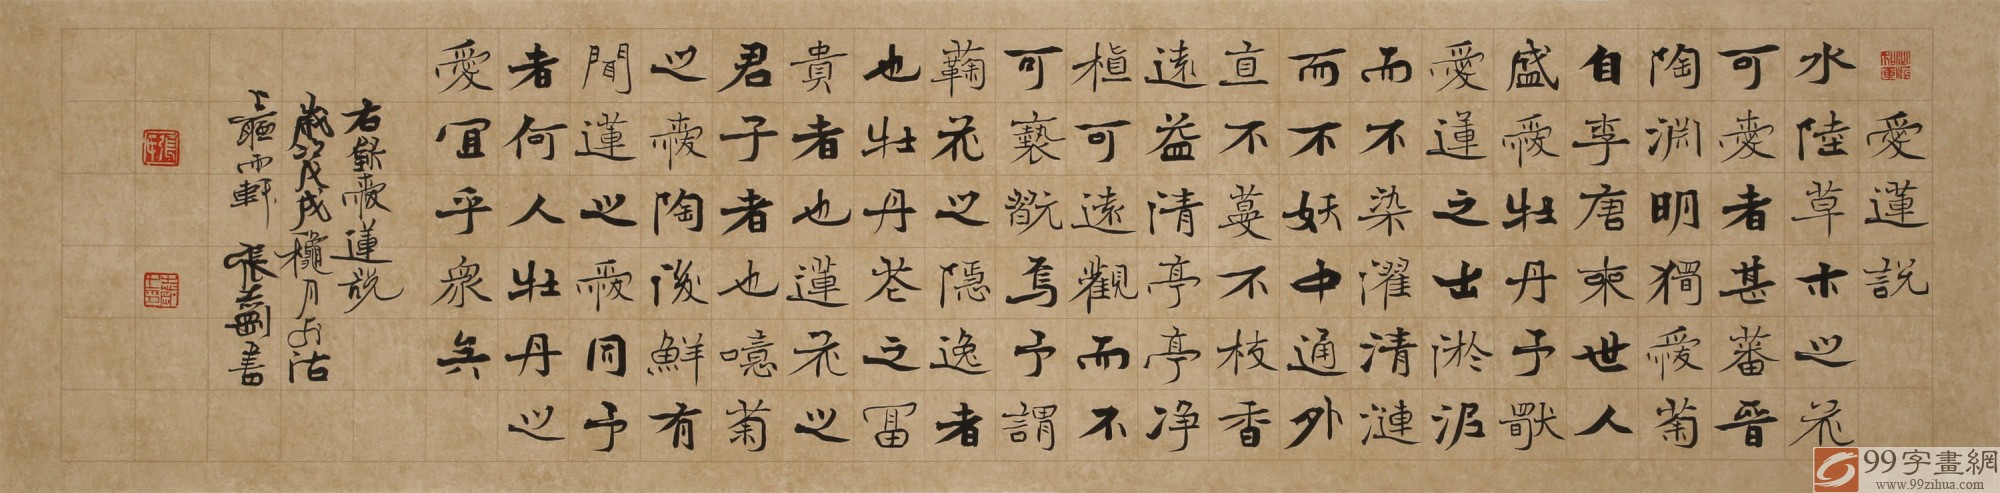 愛蓮説
水陸草木之花
可愛者甚蕃晉
陶淵明獨愛菊
自李唐來世人
盛愛牡丹予獨
愛蓮之出淤泥
而不染濯清漣
而不妖中通外
直不蔓不枝香
遠益清亭亭净
植可遠觀而不
可褻翫焉予謂
鞠花之隱逸者
也牡丹花之冨
貴者也蓮花之
君子者也噫菊
之愛陶後鮮有
聞蓮之愛同予
者何人牡丹之
愛宜乎衆矣
右録愛蓮説
歲次戊戌月於沽
上聽雨軒 張書
99字畫網
www.99zihua.com